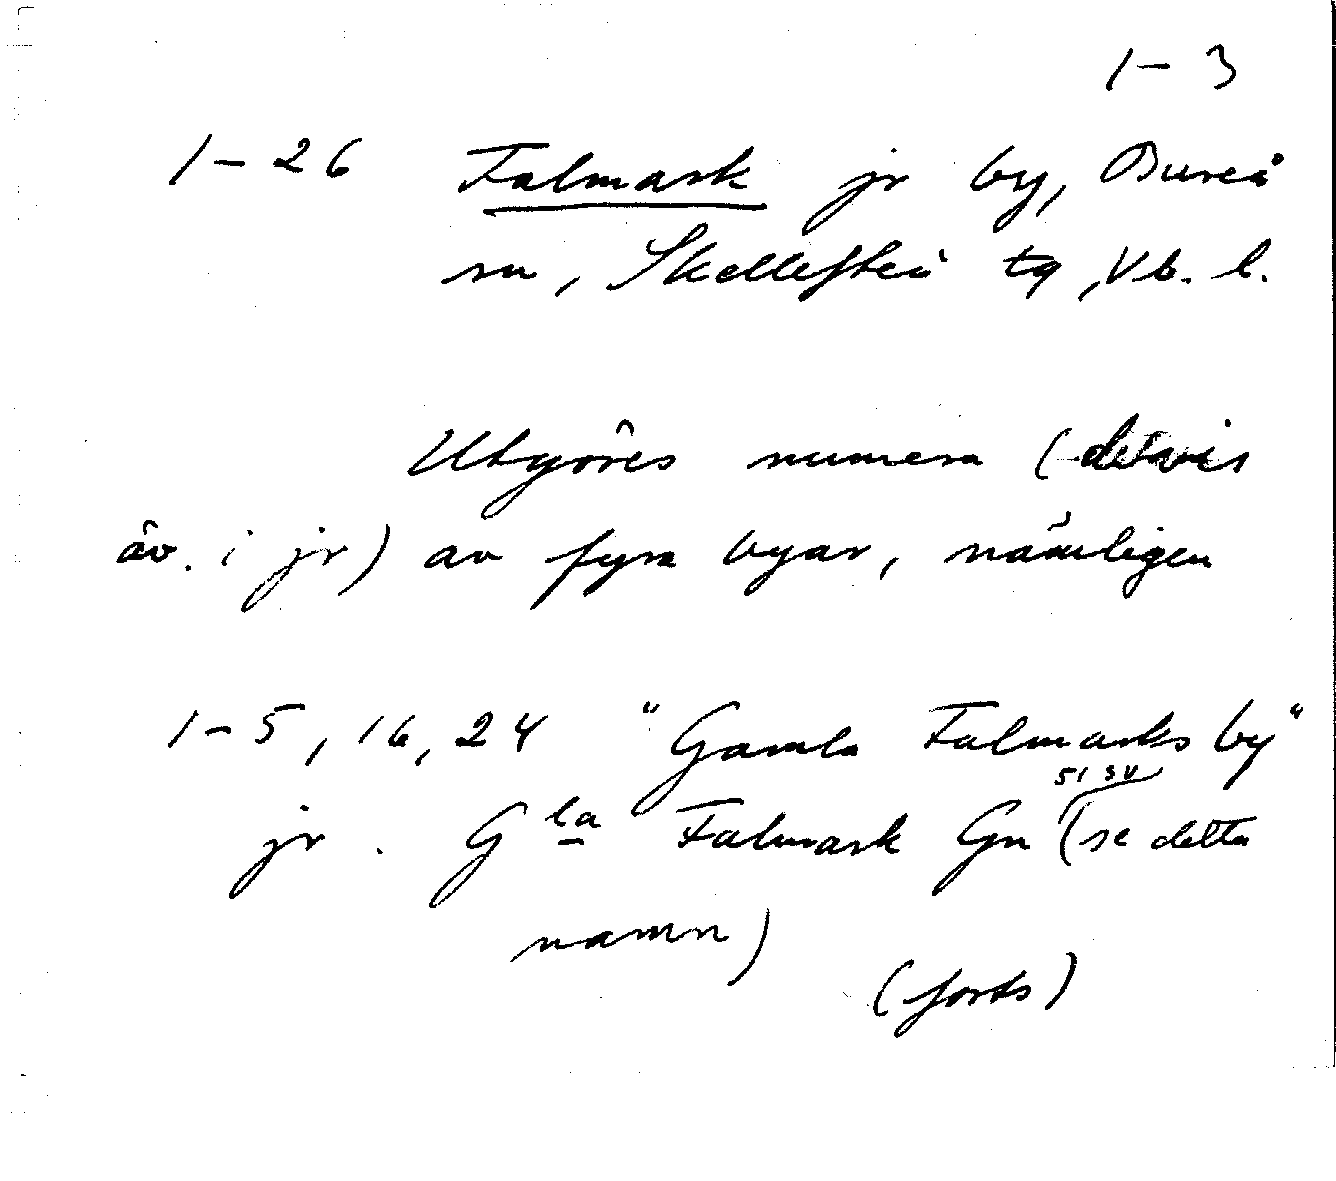 1-3
1-26 Falmark jr by, Bureå
sn, Skellefteå tg, Vb. l.
Utgöres numera (delvis
äv. i jr) av fyra byar, nämligen
1-5, 16, 24 "Gamla Falmarks by"
51 SV
jr. Gla Falmark Gn (se detta
namn)
(forts)